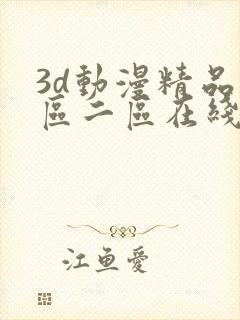 3d動漫精品
區二區在綫
江魚愛